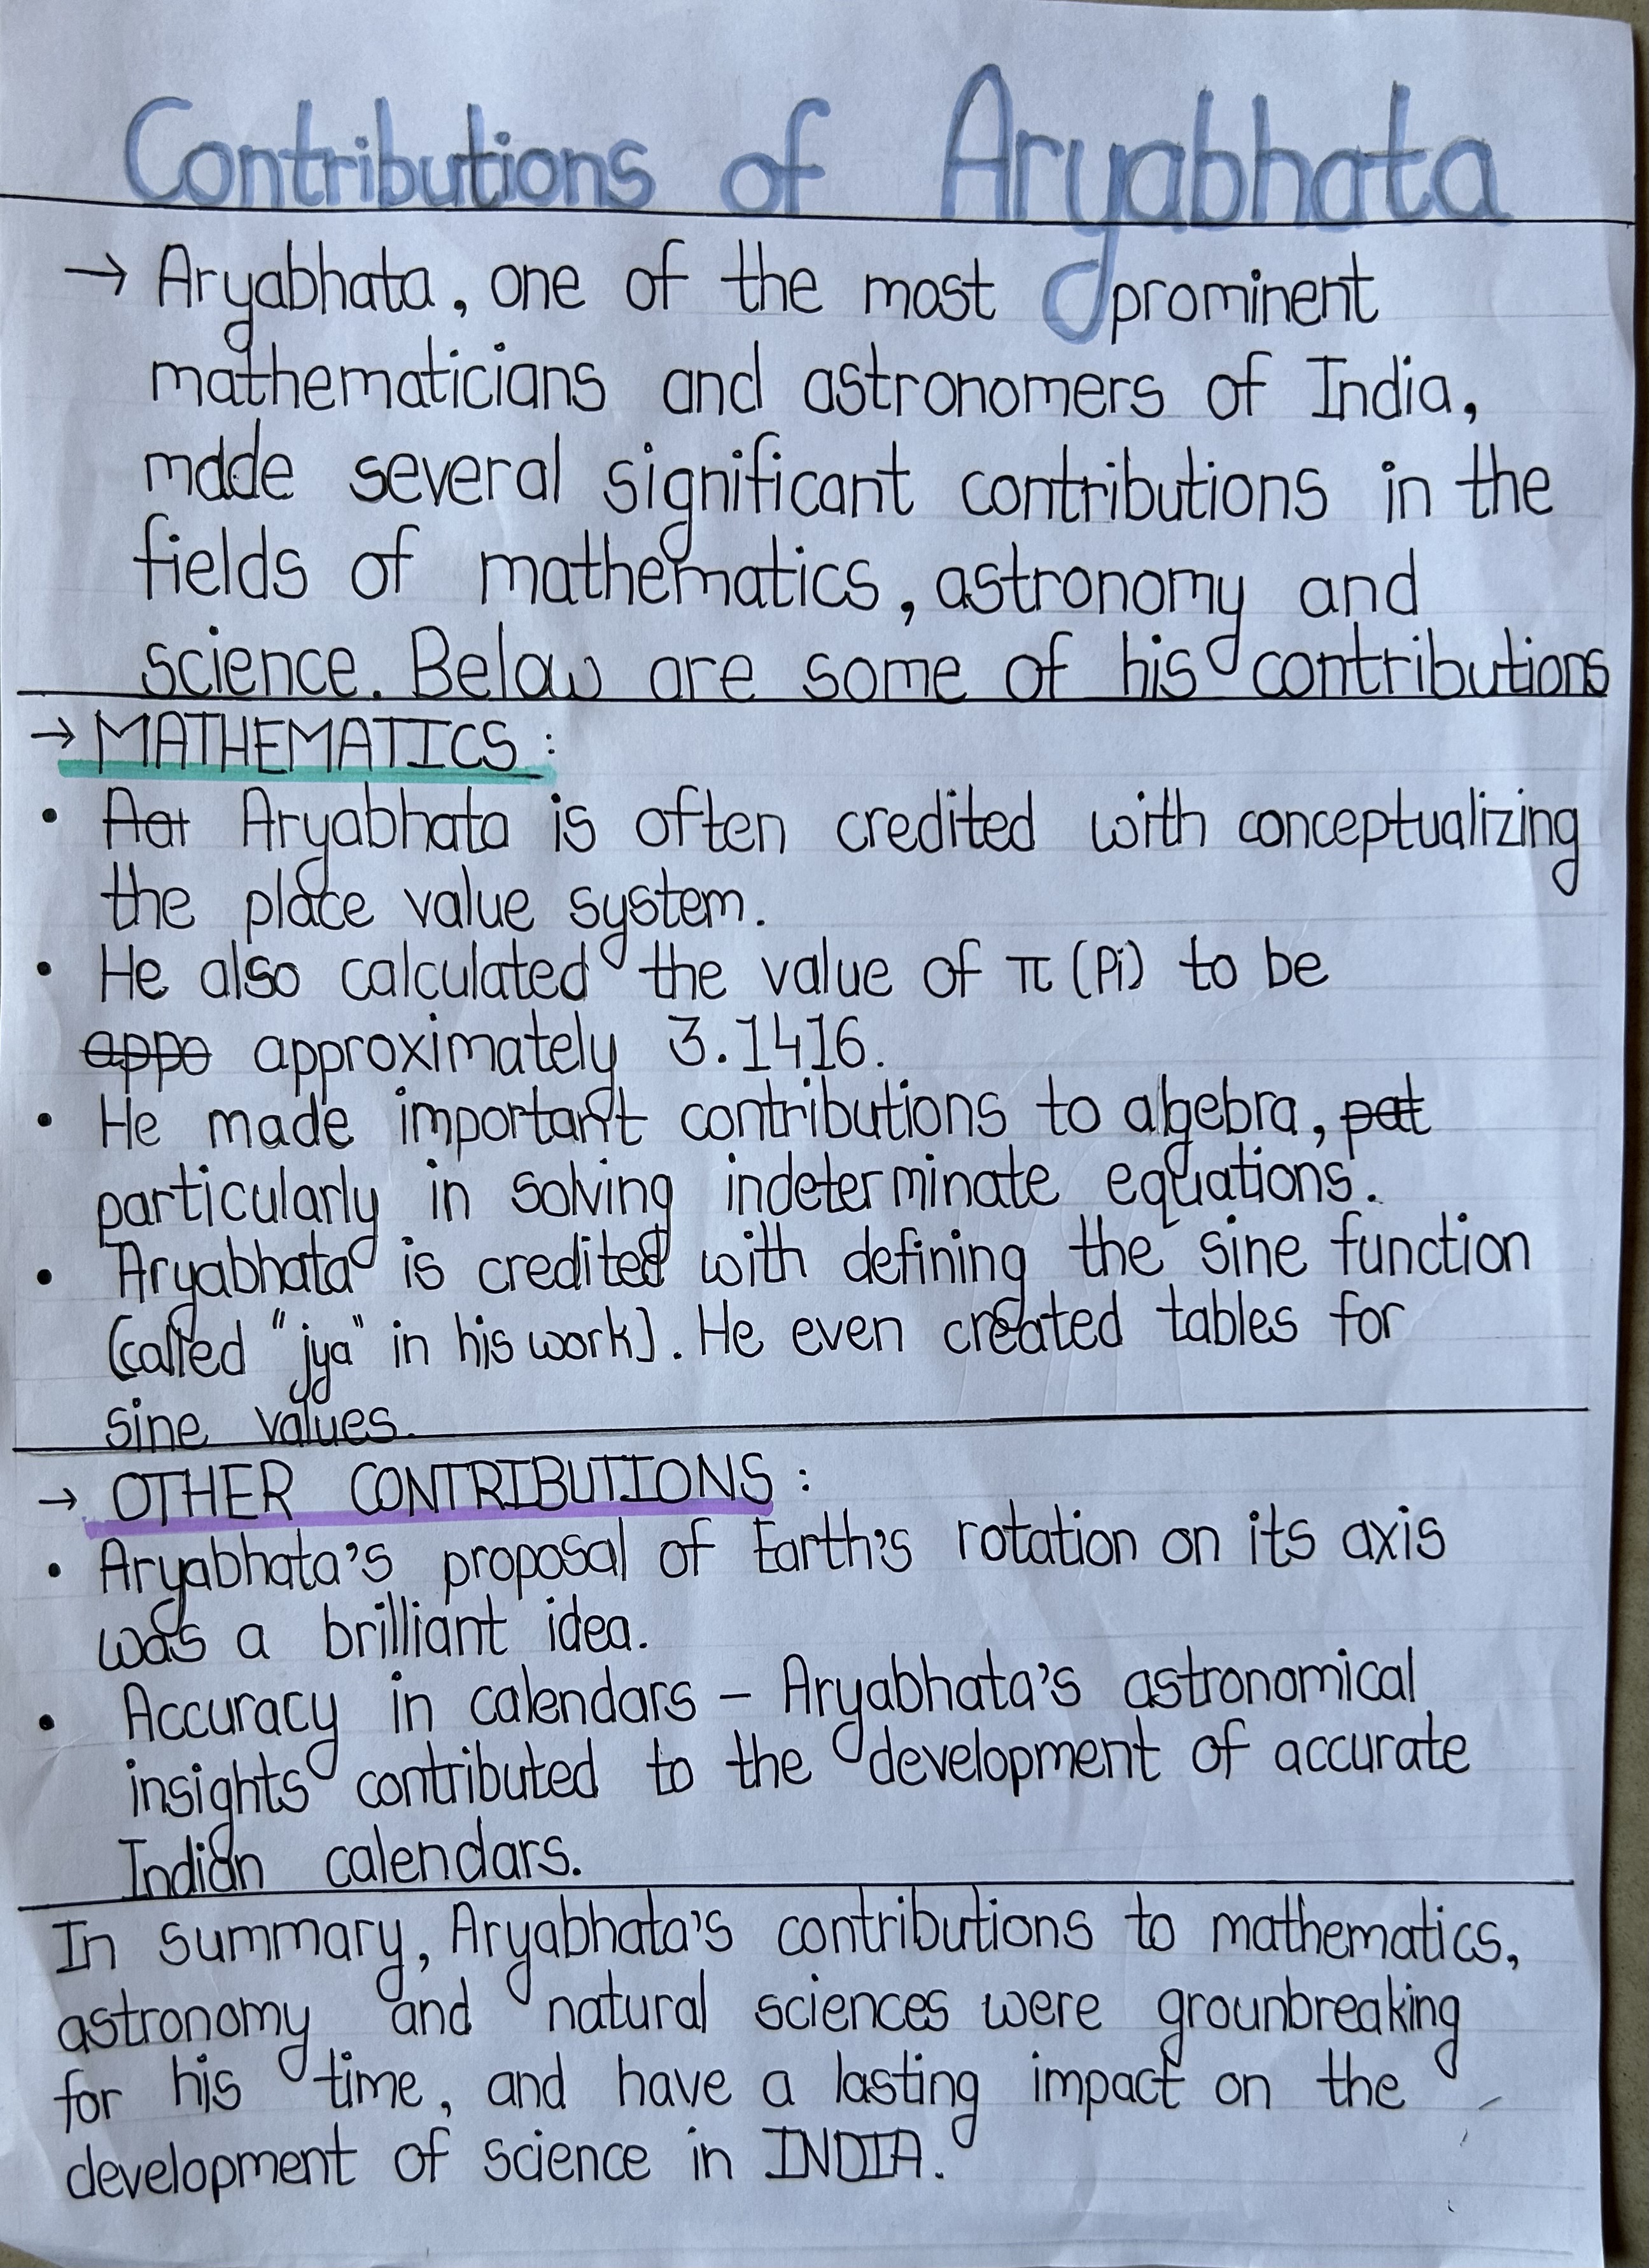 Contributions of Aryabhata
→ Aryabhata, one of the most prominent
mathematicians and astronomers of India,
made several significant contributions in the
fields of mathematics, astronomy and
science. Below are some of his contributions
→ MATHEMATICS :
• Aat Aryabhata is often credited with conceptualizing
the place value system.
• He also calculated the value of π (Pi) to be
appo approximately 3.1416.
• He made important contributions to algebra, pat
particularly in solving indeterminate equations.
• Aryabhata is credited with defining the sine function
(called "jya" in his work). He even created tables for
sine values.
→ OTHER CONTRIBUTIONS :
• Aryabhata's proposal of Earth's rotation on its axis
was a brilliant idea.
• Accuracy in calendars – Aryabhata's astronomical
insights contributed to the development of accurate
Indian calendars.
In summary, Aryabhata's contributions to mathematics,
astronomy and natural sciences were grounbreaking
for his time, and have a lasting impact on the
development of science in INDIA.